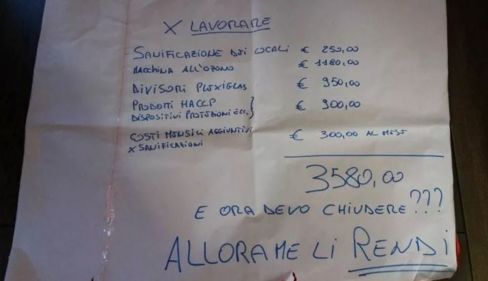 X LAVORARE
SANIFICAZIONE DEI LOCALI € 250,00
MACCHINA ALL'OZONO € 1180,00
DIVISORI PLEXIGLAS € 950,00
PRODOTTI HACCP
DISPOSITIVI PROTEZIONI ECC. } € 900,00
COSTI MENSILI AGGIUNTIVI € 300,00 AL MESE
X SANIFICAZIONI
3580,00
E ORA DEVO CHIUDERE???
ALLORA ME LI RENDI